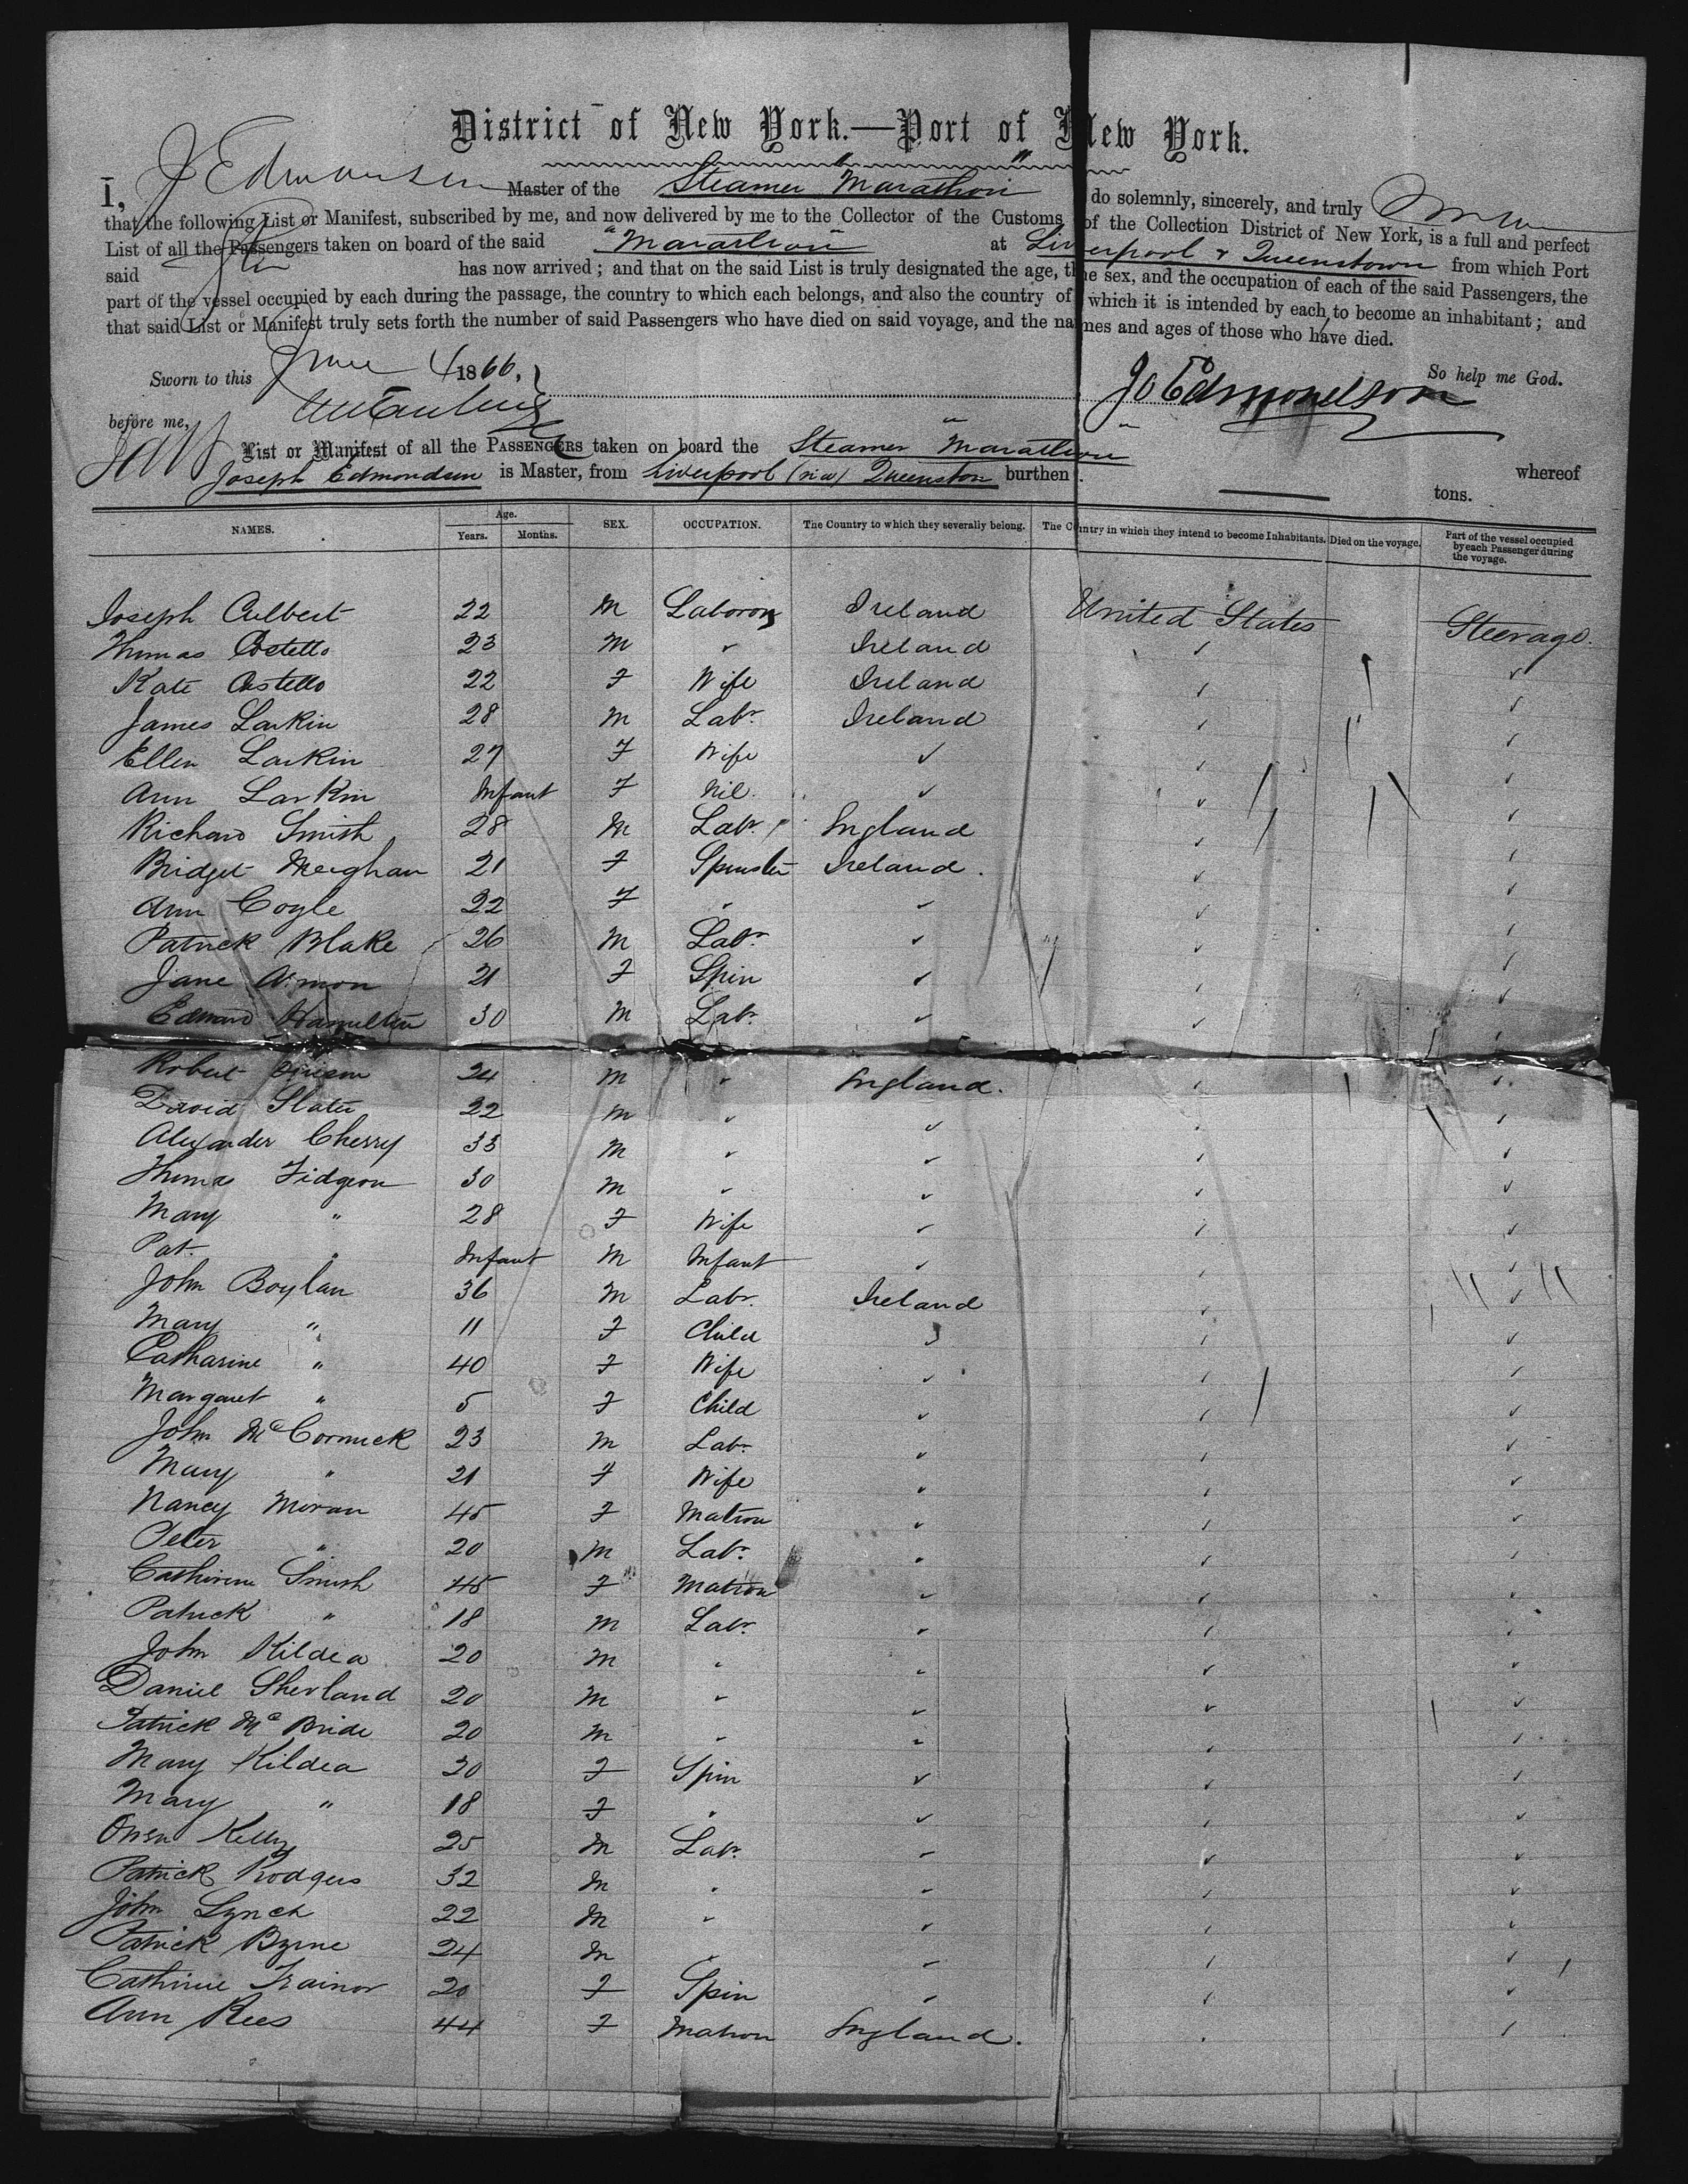 District of New York.—Port of New York.
I, J Edmondson Master of the Steamer "Marathon" do solemnly, sincerely, and truly
that the following List or Manifest, subscribed by me, and now delivered by me to the Collector of the Customs of the Collection District of New York, is a full and perfect
List of all the Passengers taken on board of the said "Marathon" at Liverpool & Queenstown from which Port
said has now arrived; and that on the said List is truly designated the age, the sex, and the occupation of each of the said Passengers, the
part of the vessel occupied by each during the passage, the country to which each belongs, and also the country of which it is intended by each to become an inhabitant; and
that said List or Manifest truly sets forth the number of said Passengers who have died on said voyage, and the names and ages of those who have died.
Sworn to this June 4 1866, So help me God.
before me, Jo Edmondson
List or Manifest of all the PASSENGERS taken on board the Steamer "Marathon" whereof
Joseph Edmondson is Master, from Liverpool (via) Queenston burthen tons.
NAMES. Age. Years. Months. SEX. OCCUPATION. The Country to which they severally belong. The Country in which they intend to become Inhabitants. Died on the voyage. Part of the vessel occupied by each Passenger during the voyage.
Joseph Culbert 22 M Laborors Ireland United States Steerage.
Thomas Costello 23 M " Ireland
Kate Costello 22 F Wife Ireland
James Larkin 28 M Labr. Ireland
Ellen Larkin 27 F Wife
Ann Larkin Infant F Nil.
Richard Smith 28 M Labr. England
Bridget Meighan 21 F Spinster Ireland.
Ann Coyle 22 F
Patrick Blake 26 M Labr.
Jane 21 F Spin
Edward Hamilton 30 M Labr.
Robert 24 M England.
David Slater 22 M
Alexander Cherry 33 M
Thomas Fidgeon 30 M
Mary " 28 F Wife
Pat. " Infant M Infant
John Boylan 36 M Labr. Ireland
Mary " 11 F Child
Catharine " 40 F Wife
Margaret " 5 F Child
John McCormick 23 M Labr
Mary " 21 F Wife
Nancy Moran 45 F Matron
Peter " 20 M Labr.
Catherine Smith 45 F Matron
Patrick " 18 M Labr.
John Kildea 20 M
Daniel Sherland 20 M
Patrick McBride 20 M
Mary Kildea 20 F Spin
Mary " 18 F "
Owen Kelly 25 M Labr.
Patrick Rodgers 32 M
John Lynch 22 M
Patrick Byrne 24 M
Catherine Trainor 20 F Spin
Ann Rees 44 F Matron England.